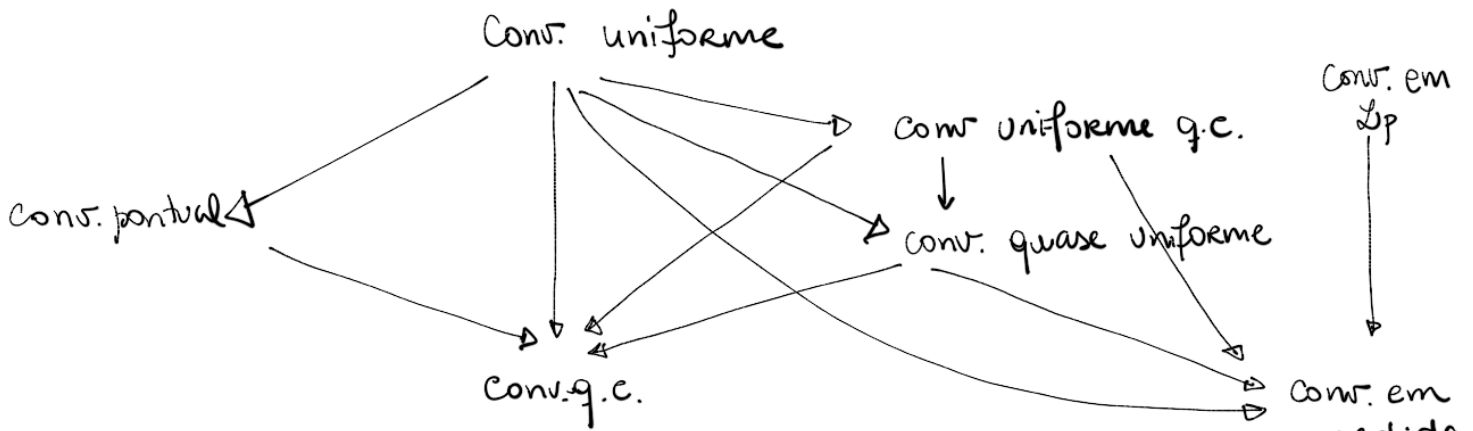 Conv. uniforme
Conv. em
Lp
conv uniforme q.c.
conv. pontual
conv. quase uniforme
Conv. q.c.
Conv. em
medida